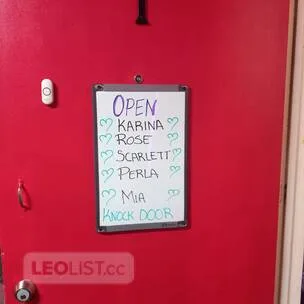 OPEN
KARINA
ROSE
SCARLETT
PERLA
MIA
KNOCK DOOR
LEOLIST.cc